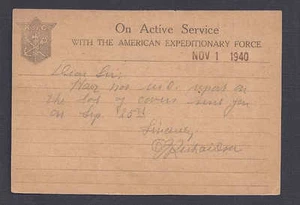 On Active Service
WITH THE AMERICAN EXPEDITIONARY FORCE
NOV 1 1940
Dear Sir:
Have not rec. report on
the lot of covers sent you
on Sep. 25th
Sincerely,